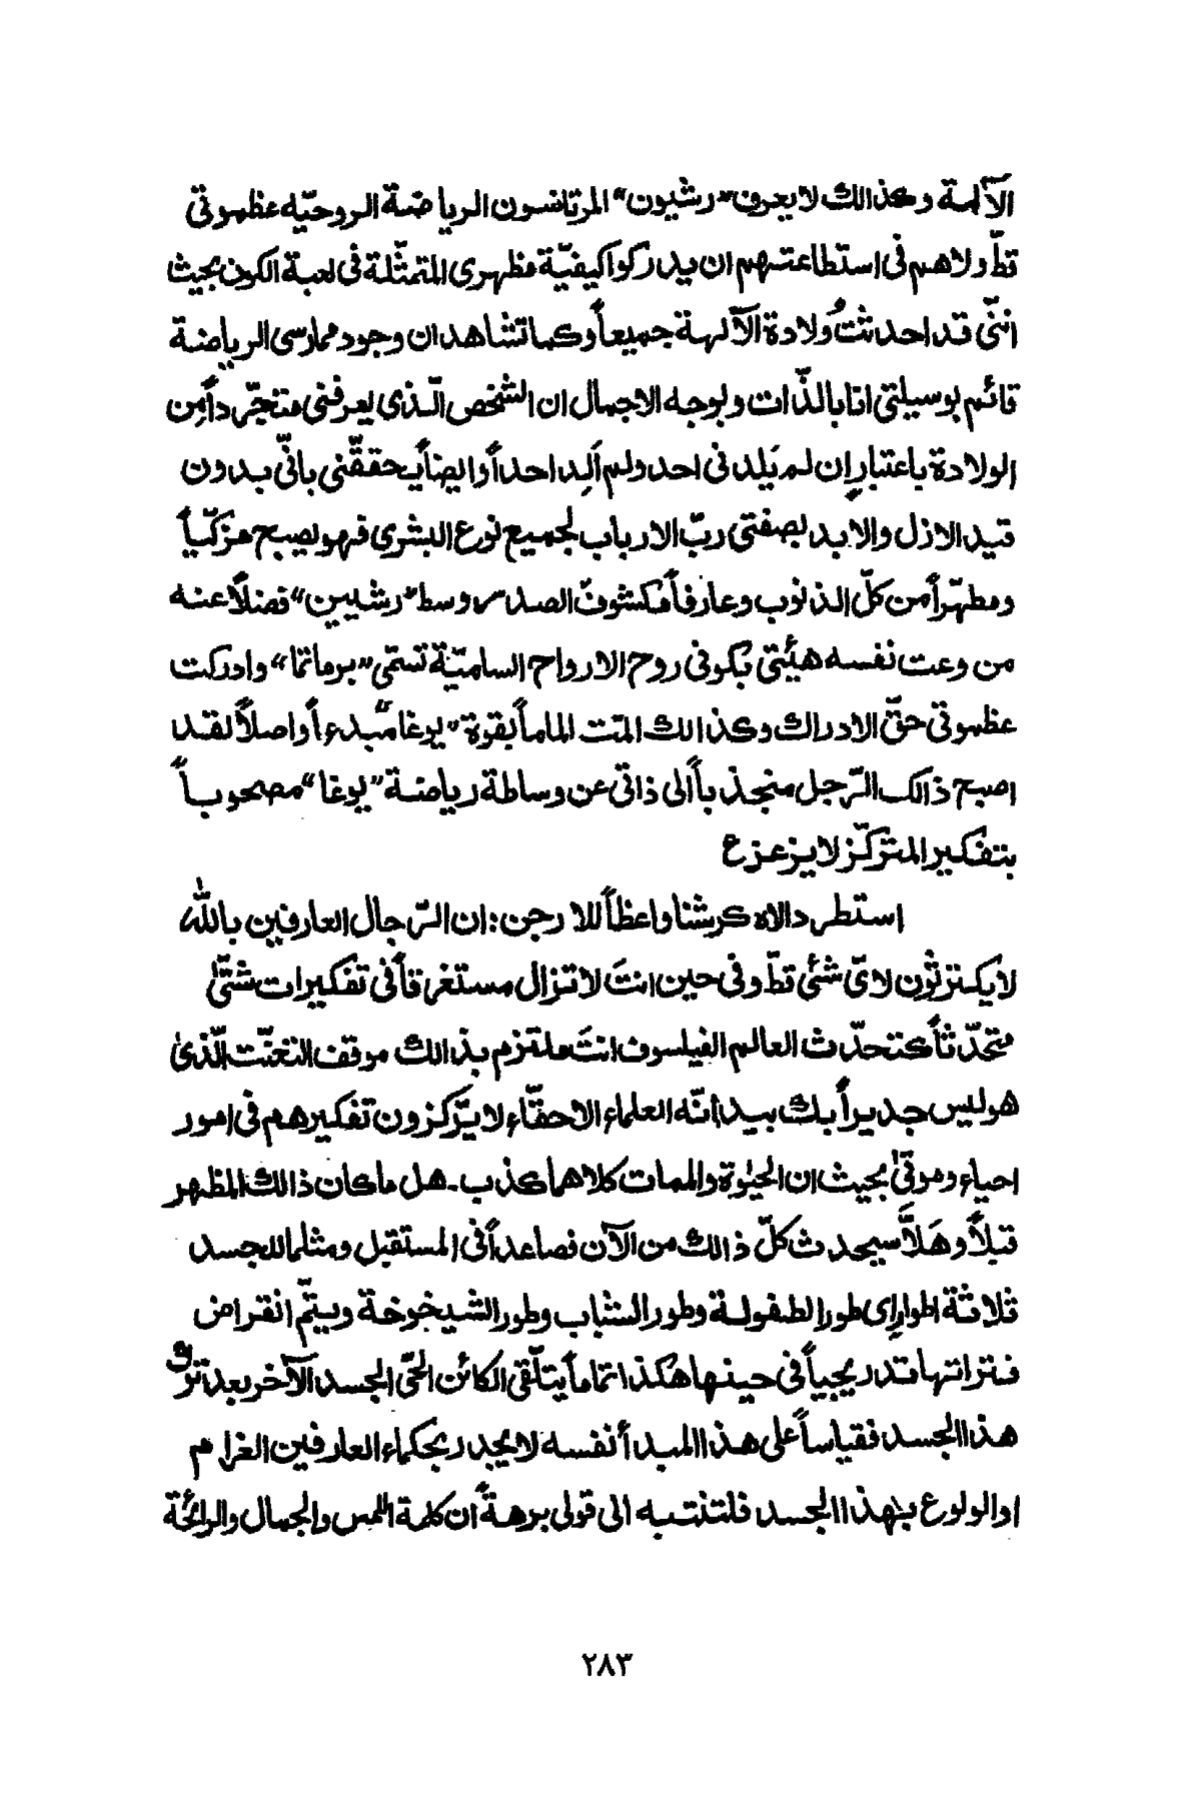 الآلهة وكذالك لا يعرف "رشيون" المرتاضون الرياضة الروحيّه عظموتي
قطّ ولاهم في استطاعتهم ان يدركوا كيفيّة مظهري المتمثّلة في لعبة الكون بحيث
انني قد احدثتُ ولادة الآلهة جميعاً وكما تشاهد ان وجود ممارسي الرياضة
قائم بوسيلتي انا بالذّات وبوجه الاجمال ان الشخص الّذي يعرفني متجرّداً مِن
الولادة باعتبارِ ان لم يَلد ني احد ولم اَلِد احداً وايضاً يحققّني بانّي بدون
قيد الازل والابد بصفتي ربّ الارباب لجميع نوع البشري فهو يصبح مزكّياً
ومطهّراً من كلّ الذنوب وعارفاً مكشوفّ الصدر وسط "رشيين" فضلاً عنه
من وعت نفسه هيئتي بكوني روح الارواح الساميّة تسمّى "برماتما" وادركت
عظموتي حقّ الادراك وكذالك المّت الماماً بقوة "يوغا" مبدءاً واصلاً لقد
اصبح ذالك الرّجل منجذباً الى ذاتي عن وساطة رياضة "يوغا" مصحوباً
بتفكير المتركّز لا يزعزع
استطرد الاه كرشنا واعظاً للارجن: ان الرّجال العارفين بالله
لا يكترثون لايّ شئ قطّ وفي حين انتَ لا تزال مستغرقاً في تفكيرات شتّى
متحّدثاً كتحدّث العالم الفيلسوف انتَ ملتزم بذالك موقف التعنّت الّذى
هو ليس جديراً بك بيد انّه العلماء الاحقّاء لا يرّكزون تفكيرهم في امور
احياء وموتىٰ بحيث ان الحيٰوة والممات كلاهما كذب ـ هل ما كان ذالك المظهر
قبلاً وهَلاَّ سيحدث كلّ ذالك من الآن فصاعداً في المستقبل ومثلما للجسد
ثلاثة اطوارِ اى طور الطفولة وطور الشباب وطور الشيخوخة ويتمّ انقراض
فتراتها تدريجياً في حينها هكذا تماماً يتلّقى الكائن الحّي الجسد الآخر بعد ترك
هذا الجسد فقياساً على هذا المبدأ نفسه لا يجدر بحكماء العارفين الغرام
او الولوع بهٰذا الجسد فلتنتبه الى قولى برهةً ان كلمة اللمس والجمال والرائحة
٢٨٣